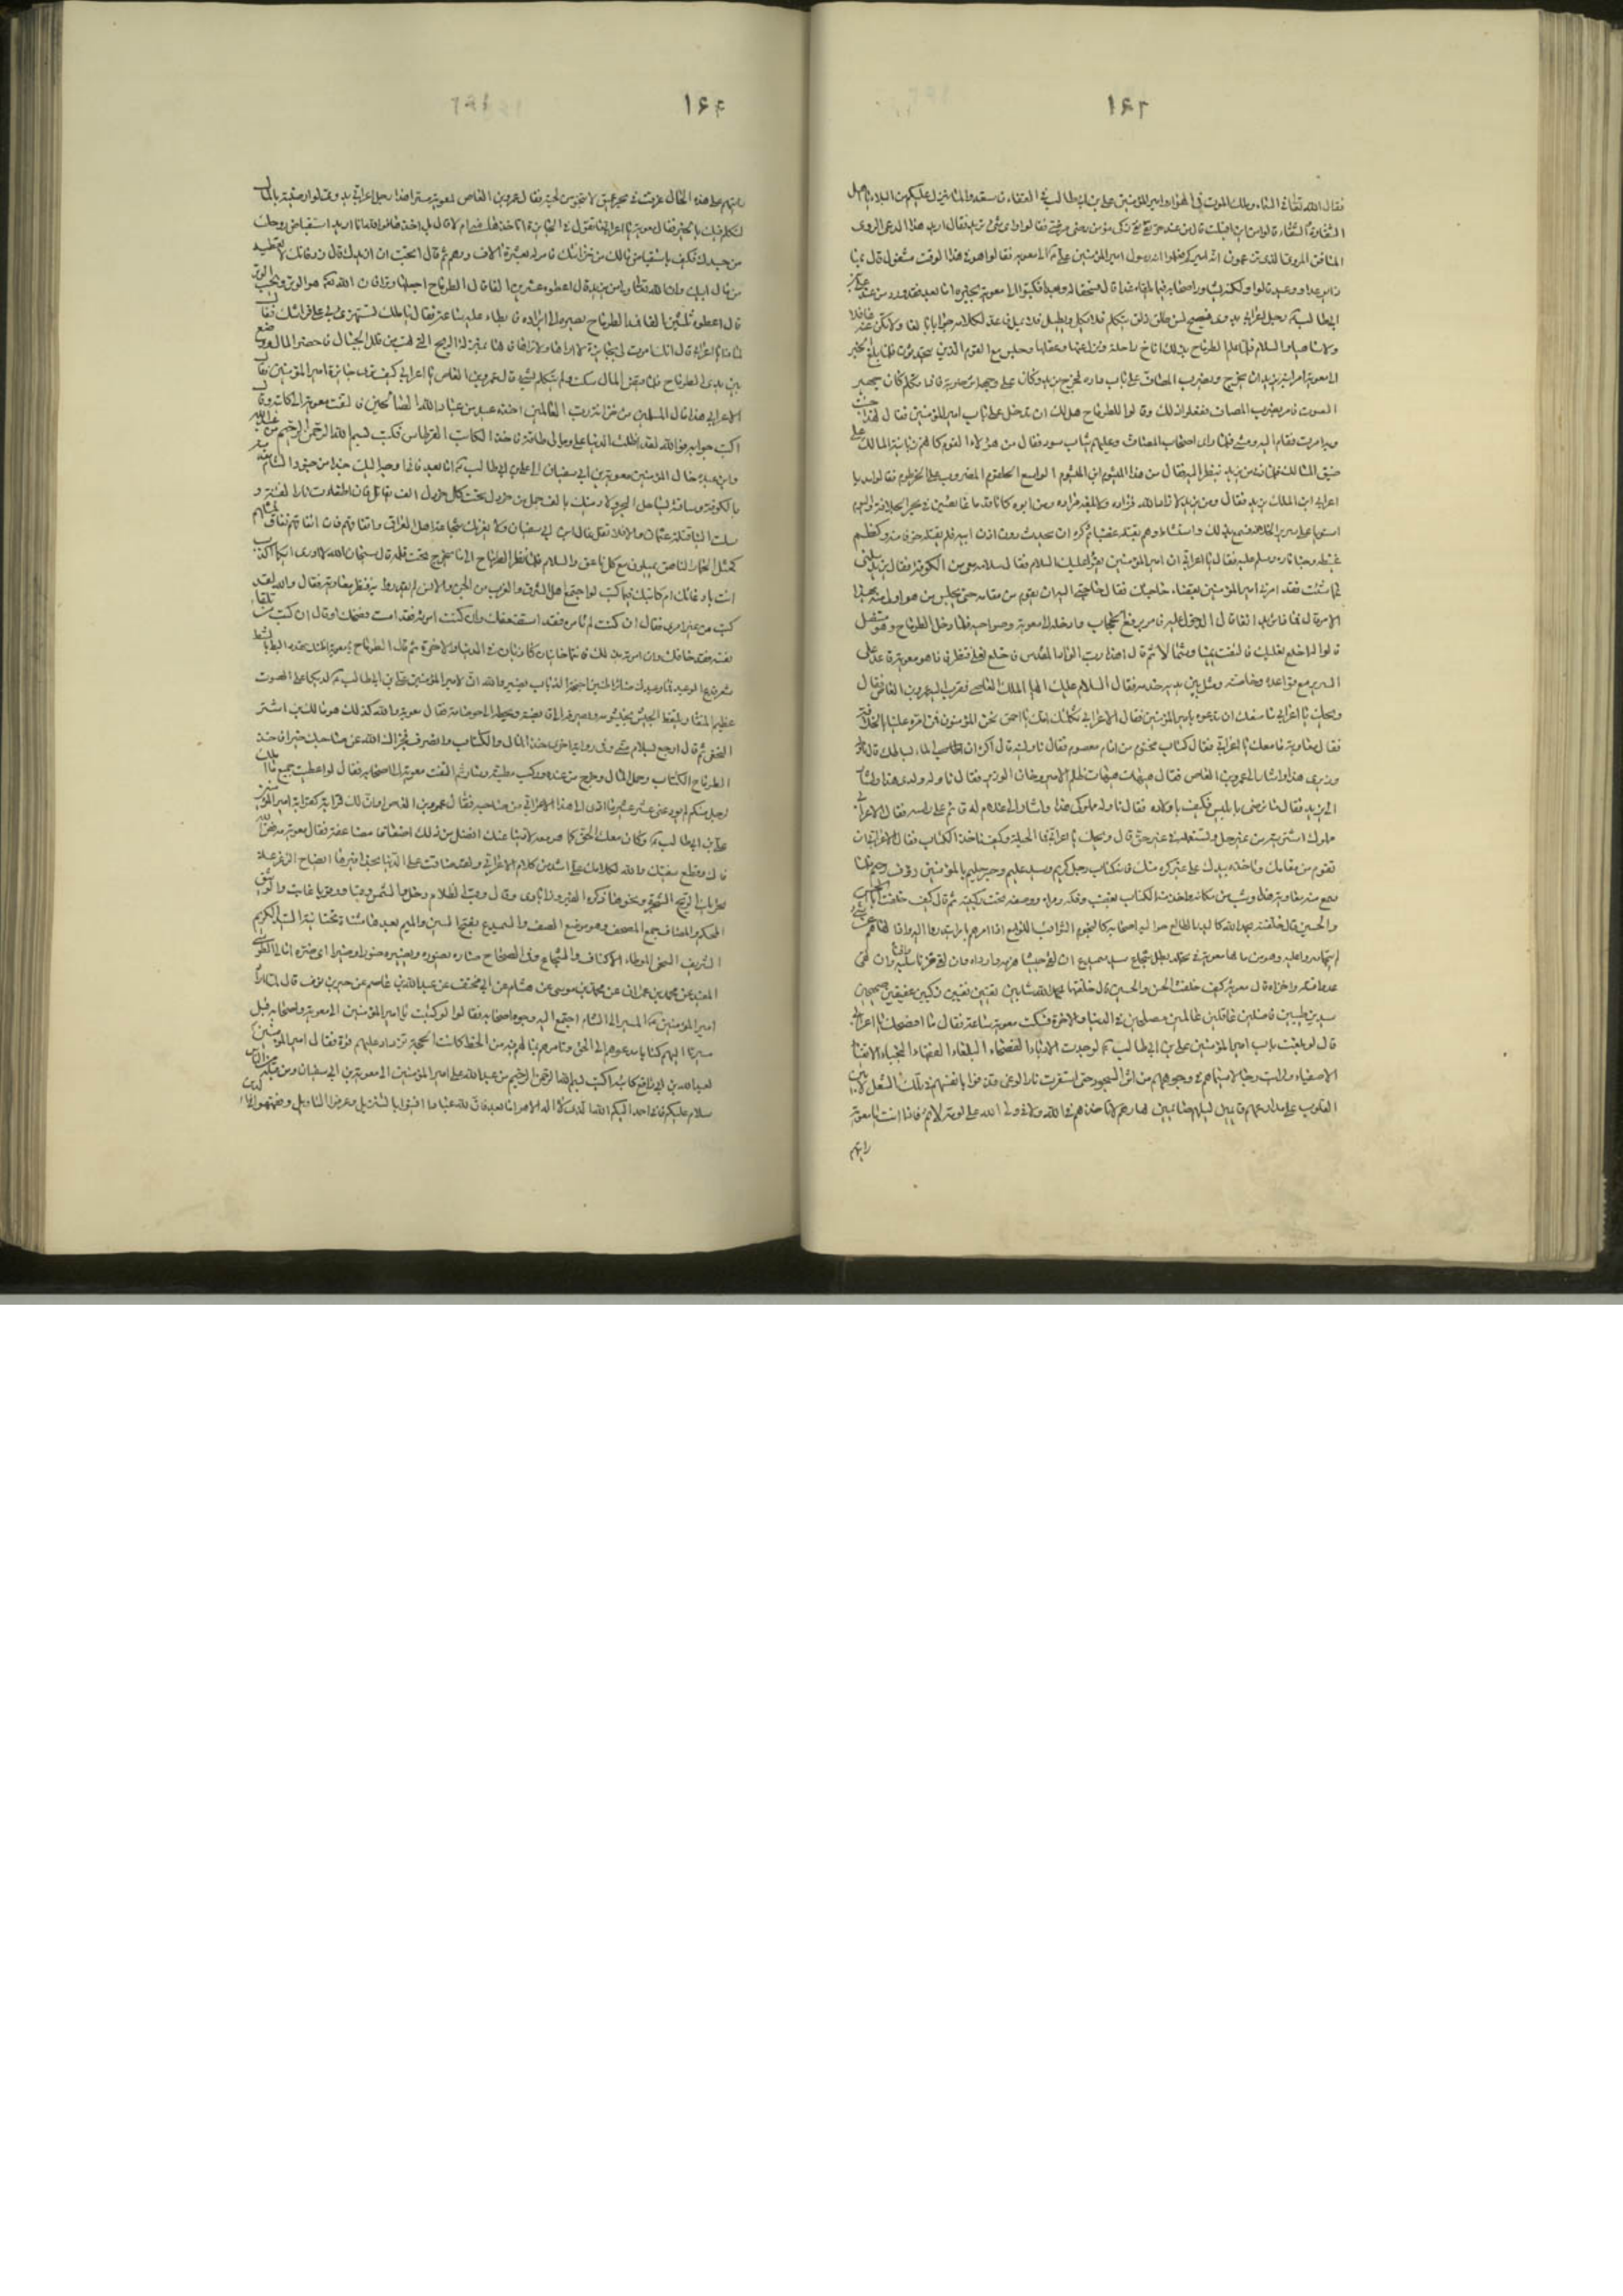 ١۶٣
فقال الله تعالى في السماء وملك الموت في الهواء وامير المؤمنين علي بن ابي طالب في القفاء فاستعدوا لما ينزل عليكم من البلاء يا اهل
الشقاوة والشقاء قالوا من اين اقبلت قال من عند حر تقي نقي زكي مؤمن رضي مرضي فقالوا واي شيء تريد فقال اريد هذا الدعي الردي
المنافق المردي الذي تزعمون انه اميركم فعلموا انه رسول امير المؤمنين علي الى معوية فقالوا هو في هذا الوقت مشغول قال بماذا
بوعد او وعيد قالوا ولكنه يشاور اصحابه فيما يلقاه غدا قال فسحقا له وبعدا فكتبوا الى معوية بخبره اما بعد فقد ورد من عند علي بن
ابي طالب رجل اعرابي بدوي فصيح لسن طلق ذلق يتكلم فلا يكل ويطيل فلا يمل فاعد لكلامه جوابا بالغا ولا تكن عنه غافلا
ولا ساهيا والسلام فلما علم الطرماح بذلك اناخ راحلته ونزل عنها وعقلها وجلس مع القوم الذين يتحدثون فلما بلغ الخبر
الى معوية امر ابنه يزيد ان يخرج ويضرب المصاف على باب داره فخرج يزيد وكان على وجهه اثر ضربة فاذا تكلم كان جهير
الصوت فامر بضرب المصاف ففعلوا ذلك وقالوا للطرماح هل لك ان تدخل على باب امير المؤمنين فقال لهذا جئت
وبه امرت فقام اليه ومشى فلما راى اصحاب المصاف وعليهم ثياب سود فقال من هؤلاء القوم كانهم زبانية المالك على
ضيق المسالك فلما دنا من يزيد نظر اليه فقال من هذا الميشوم ابن الميشوم الواسع الحلقوم المضروب على الخرطوم فقالوا مه يا
اعرابي ابن الملك يزيد فقال ومن يزيد لا زاد الله مزاده ولا بلغه مراده ومن ابوه كانا قدما غائصين في بحر الجلافة واليوم
استويا على سرير الخلافة فسمع يزيد ذلك واستشاط وهم بقتله غضبا ثم كره ان يحدث دون اذن ابيه فلم يقتله خوفا منه وكظم
غيظه وخبا ناره وسلم عليه فقال يا اعرابي ان امير المؤمنين يقرا عليك السلام فقال سلامه معي من الكوفة فقال يزيد سلني
عما شئت فقد امرني امير المؤمنين بقضاء حاجتك فقال حاجتي اليه ان يقوم من مقامه حتى يجلس من هو اولى منه بهذا
الامر قال فماذا تريد انفا قال الدخول عليه فامر برفع الحجاب وادخله الى معوية وصواحبه فلما دخل الطرماح وهو متنعل
قالوا له اخلع نعليك فالتفت يمينا وشمالا ثم قال اهذا رب الواد المقدس فاخلع نعلي فنظر فاذا هو معوية قاعد على
السرير مع قواعده وخاصته ومثل بين يديه خدمه فقال السلام عليك ايها الملك العاصي فقرب اليه عمرو بن العاص فقال
ويحك يا اعرابي ما منعك ان تدعوه بامير المؤمنين فقال الاعرابي ثكلتك امك يا احمق نحن المؤمنون فمن امره علينا بالخلافة
فقال معاوية ما معك يا اعرابي فقال كتاب مختوم من امام معصوم فقال ناولنيه قال اكره ان اطأ بساطك قال ناوله
وزيري هذا واشار الى عمرو بن العاص فقال هيهات هيهات ظلم الامير وخان الوزير فقال ناوله ولدي هذا واشار
الى يزيد فقال ما نرضى بابليس فكيف باولاده فقال ناوله مملوكي هذا واشار الى غلام له قائم على راسه فقال الاعرابي
مملوك اشتريته من غير حل وتستعمله في غير حق قال ويحك يا اعرابي فما الحيلة وكيف ناخذ الكتاب فقال الاعرابي ان
تقوم من مقامك وتاخذه بيدك على غير كره منك فانه كتاب رجل كريم وسيد عليم وحبر حليم بالمؤمنين رؤوف رحيم فلما
سمع منه معاوية هذا وثب من مكانه واخذ منه الكتاب بغضب وفكه وقراه ووضعه تحت ركبتيه ثم قال كيف خلفت ابا الحسن
والحسين قال خلفته بحمد الله كالبدر الطالع حواليه اصحابه كالنجوم الثواقب اللوامع اذا امرهم بامر ابتدروا اليه واذا نهاهم عن شيء
لم يتجاسروا عليه وهو من باسه يا معوية في تجلد بطل شجاع سيد سميدع ان لقي جيشا هزمه وارداه وان لقي قرنا سلبه وافناه وان لقي
عدوا قتله واخزاه قال معوية كيف خلفت الحسن والحسين قال خلفتهما بحمد الله شابين تقيين نقيين زكيين عفيفين صحيحين
سيدين طيبين فاضلين عاقلين عالمين مصلحين في الدنيا والاخرة فسكت معوية ساعة فقال ما افصحك يا اعرابي
قال لو بلغت باب امير المؤمنين علي بن ابي طالب لوجدت الادباء الفصحاء البلغاء الفقهاء النجباء الاتقياء
الاصفياء ولرايت رجالا سيماهم في وجوههم من اثر السجود حتى اذا استعرت نار الوغى قذفوا بانفسهم في تلك الشعل لابسين
القلوب على مدارعهم قائمين ليلهم صائمين نهارهم لا تاخذهم في الله ولا في ولي الله علي لومة لائم فاذا انت يا معوية
رايتهم
١۶۴
رايتهم على هذه الحال غرقت في بحر عميق لا تنجو من لجته فقال عمرو بن العاص لمعوية سرا هذا رجل اعرابي بدوي لو ارضيته بالمال
لتكلم فيك بالخير فقال معوية يا اعرابي ما تقول في الجائزة اتاخذها مني ام لا قال بلى اخذها فوالله انا اريد استقباض روحك
من جسدك فكيف باستقباض مالك من خزانتك فامر له بعشرة الاف درهم ثم قال اتحب ان ازيدك قال زد فانك لا تعطيه
من مال ابيك وان الله تعالى ولي من يزيد قال اعطوه عشرين الفا قال الطرماح اجعلها وترا فان الله تعالى هو الوتر ويحب الوتر
قال اعطوه ثلثين الفا فمد الطرماح بصره الى ايراده فابطاء عليه ساعة فقال يا ملك تستهزئ بي على فراشك فقال
لماذا يا اعرابي قال انك امرت لي بجائزة لا اراها ولا تراها فانها بمنزلة الريح التي تهب من قلل الجبال فاحضر المال ووضع
بين يدي الطرماح فلما قبض المال سكت ولم يتكلم بشيء قال عمرو بن العاص يا اعرابي كيف ترى جائزة امير المؤمنين فقال
الاعرابي هذا مال المسلمين من خزانة رب العالمين اخذه عبد من عباد الله الصالحين فالتفت معوية الى كاتبه وقال
اكتب جوابه فوالله لقد اظلمت الدنيا علي وما لي طاقة فاخذ الكاتب القرطاس فكتب بسم الله الرحمن الرحيم من عبد الله
وابن عبده خال المؤمنين معوية بن ابي سفيان الى علي بن ابي طالب اما بعد فاني اوجه اليك جندا من جنود الشام مقدمته
بالكوفة وساقته بساحل البحر ولارمينك بالف حمل من خردل تحت كل خردل الف مقاتل فان اطفات نار الفتنة و
سلمت الينا قتلة عثمان والا فلا تقل غال ابن ابي سفيان ولا يغرنك شجاعة اهل العراق واتفاقهم فان اتفاقهم نفاق فمثلهم
كمثل الحمار الناهق يميلون مع كل ناعق والسلام فلما نظر الطرماح الى ما يخرج تحت قلمه قال سبحان الله لا ادري ايكما اكذب
انت بادعائك ام كاتبك فيما كتب لو اجتمع اهل الشرق والغرب من الجن والانس لم يقدروا به فنظر معاوية فقال والله لقد
كتب من غير امري فقال ان كنت لم تامره فقد استضعفك وان كنت امرته فقد استفضحك او قال ان كتب من تلقاء
نفسه فقد خانك وان امرته بذلك فانتما خائنان كاذبان في الدنيا والاخرة ثم قال الطرماح يا معوية اظنك تهدد البط بالشط
شعر فدع الوعيد فما وعيدك ضائر اطنين اجنحة الذباب يضير والله ان لامير المؤمنين علي بن ابي طالب لديكا على الصوت
عظيم المنقار يلتقط الجيش بخيشومه ويصرفه الى قانصته ويحطه الى حوصلته فقال معوية والله كذلك هو مالك بن اشتر
النخعي ثم قال ارجع بسلام مني وفي رواية اخرى خذ المال والكتاب وانصرف فجزاك الله عن صاحبك خيرا فاخذ
الطرماح الكتاب وحمل المال وخرج من عنده وركب مطيته وسار ثم التفت معوية الى اصحابه فقال لو اعطيت جميع ما املك
لرجل منكم لم يؤد عني عشر عشير ما ادى هذا الاعرابي عن صاحبه فقال عمرو بن العاص لو ان لك قرابة كقرابة امير المؤمنين
علي بن ابي طالب وكان معك الحق كما هو معه لادينا عنك افضل من ذلك اضعافا مضاعفة فقال معوية فض الله
فاك وقطع شفتيك والله لكلامك علي اشد من كلام الاعرابي ولقد ضاقت علي الدنيا بحذافيرها
المحكم والمصاف جمع المصف وهو موضع الصف والسميدع بفتح السين والميم بعدها مثناة تحتانية السيد الكريم
الشريف السخي الموطأ الاكناف والشجاع وفي الصحاح ضاره يضوره ويضيره ضورا وضيرا اي ضره
المفيد عن محمد بن عمران عن محمد بن موسى عن هشام عن ابي مخنف عن عبد الله بن عاصم عن جبر بن نوف قال لما اراد
امير المؤمنين المسير الى الشام اجتمع اليه وجوه اصحابه فقالوا لو كتبت يا امير المؤمنين الى معوية واصحابه قبل
مسيرنا اليهم كتابا يدعوهم الى الحق وتامرهم بما لهم فيه من الحظ كانت الحجة تزداد عليهم قوة فقال امير المؤمنين
لعبيد الله بن ابي رافع كاتبه اكتب بسم الله الرحمن الرحيم من عبد الله علي امير المؤمنين الى معوية بن ابي سفيان ومن قبله من الناس
سلام عليكم فاني احمد اليكم الله الذي لا اله الا هو اما بعد فان لله عبادا امنوا بالتنزيل وعرفوا التاويل وفقهوا في الدين